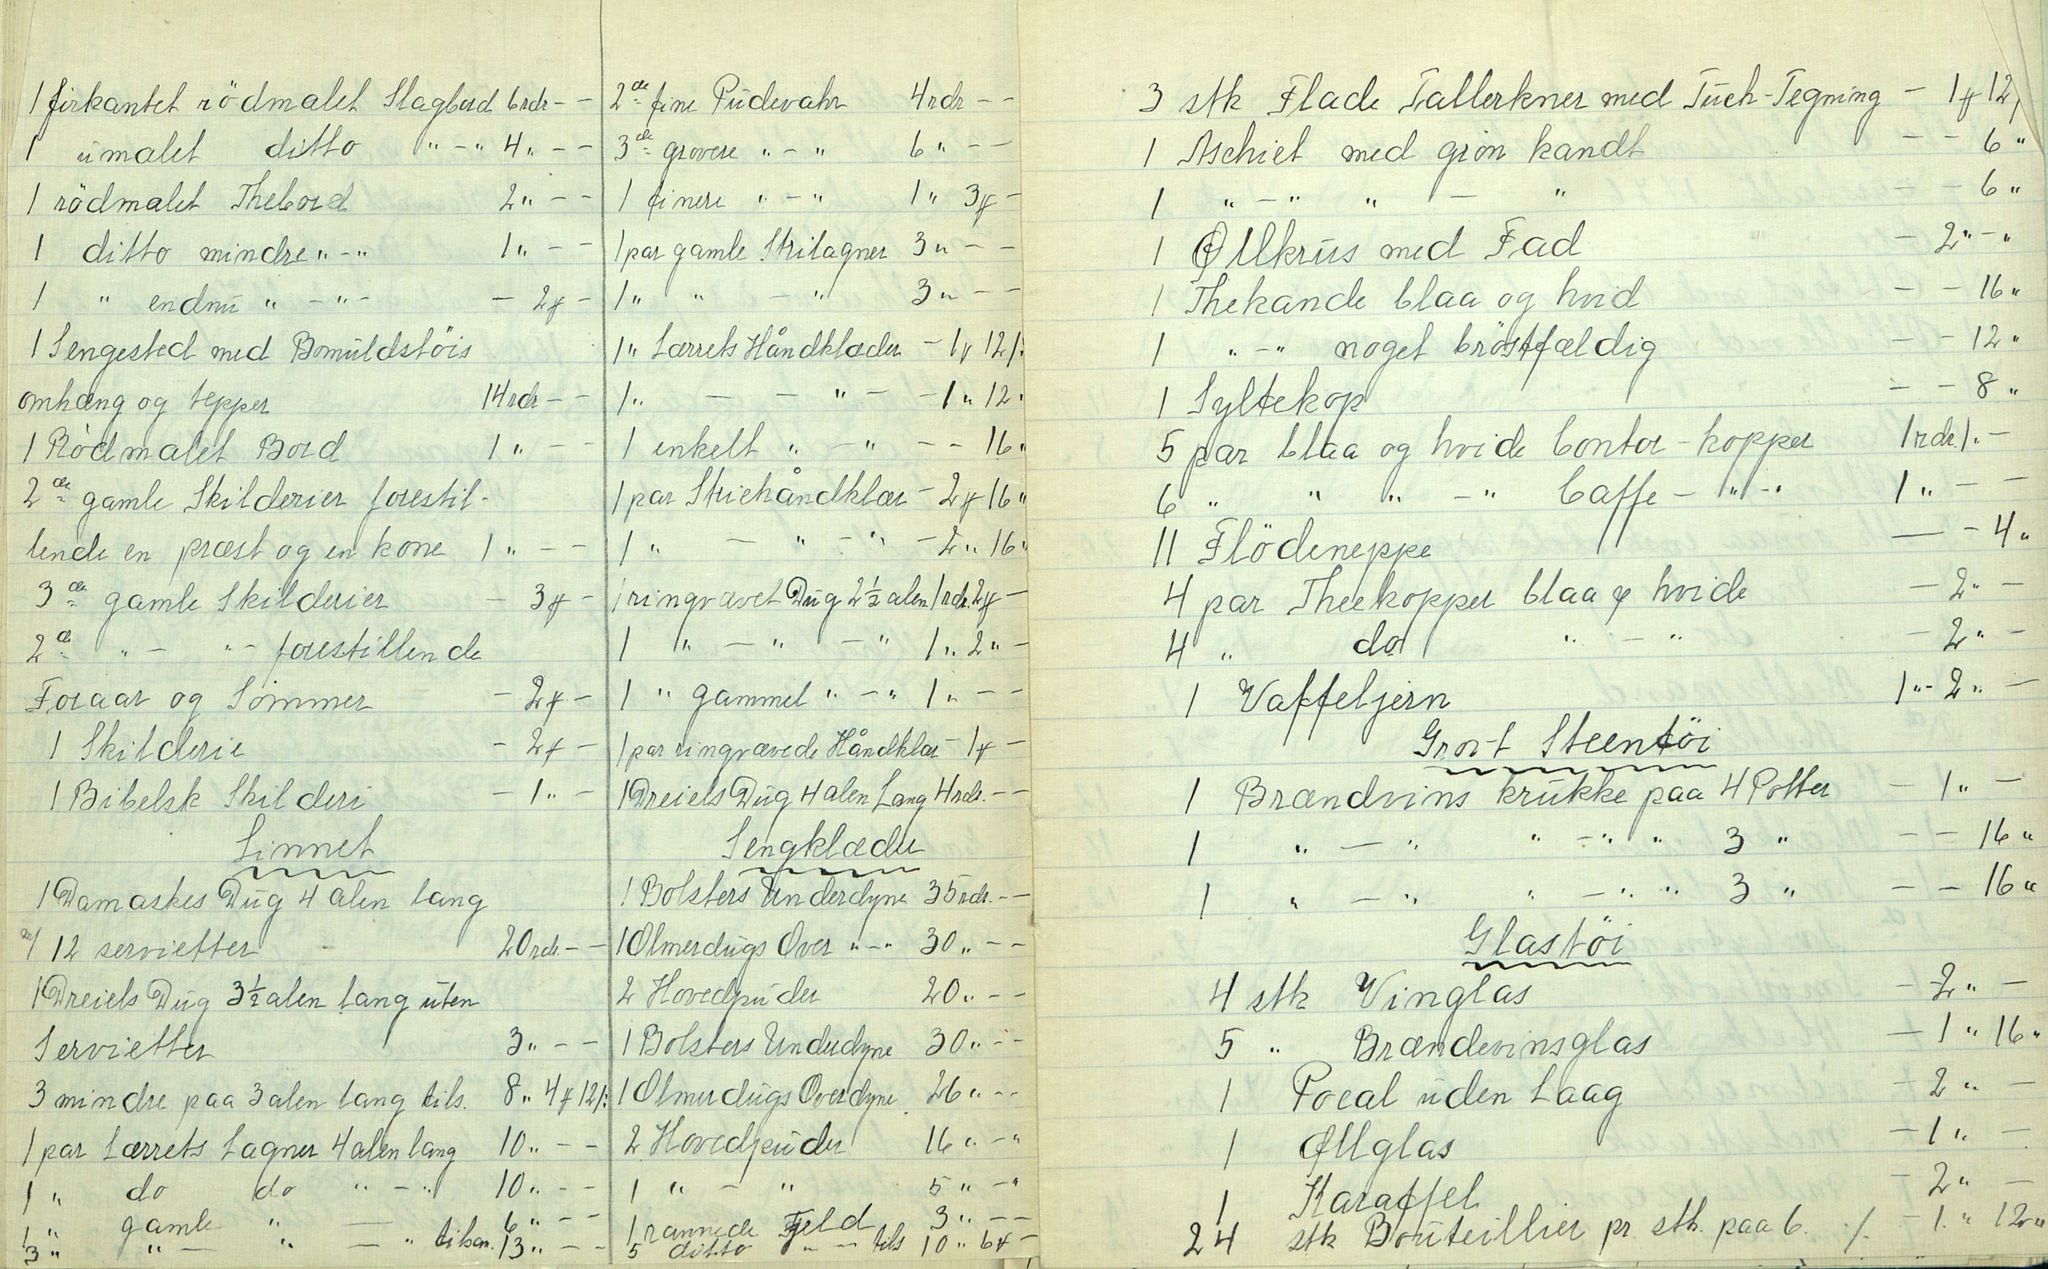 1 firkantet rödmalet Slagbord 6 rdr - -
1 umalet ditto " - " 4 " - -
1 rödmalet Thebord 2 " - -
1 ditto mindre " - " 1 " - -
1 " endnu " - " - - 2 ₰ -
1 Sengested med Bomuldstöis
omhæng og tepper 14 rdr - -
1 Rödmalet Bord 1 " - -
2de gamle Skilderier forestil-
lende en præst og en kone 1 " - -
3de gamle Skilderier - 3 ₰ -
2de " - " - forestillende
Foraar og Sommer - 2 ₰ -
1 Skilderie - 2 ₰ -
1 Bibelsk Skilderi - 1 " -
Linnet
1 Damaskes Dug 4 alen lang
m/ 12 servietter 20 rdr - -
1 Dreiels Dug 3½ alen lang uten
Servietter 3 " - -
3 mindre paa 3 alen lang tils. 8 " 4 ₰ 12 /:
1 par Lærrets Lagner 4 alen lang 10 " - -
1 " do do " - " 10 " - -
1 " gamle " — 6 " - -
3 " " - " — " tilsm. 13 " - -
2de fine Pudevahr 4 rdr - -
3de grovere " - " 6 " - -
1 finere " - " 1 " 3 ₰ -
1 par gamle Strilagner 3 " - -
1 " " - " 3 " - -
1 " Lærrets Håndklæder - 1 ₰ 12 /:
1 " — - " - - 1 " 12 "
1 enkelt " - " - - 16 "
1 par Striehåndklær - 2 ₰ 16 "
1 " — " - " - 2 " 16 "
1 ringvævet Dug 2½ alen 1 rdr. 2 ₰ -
1 " — " - " 1 " 2 " -
1 " gammel " - " 1 " - -
1 par ringvævede Håndklær - 1 ₰ -
1 Dreiels Dug 4 alen Lang 4 rdr. - -
Sengklæder
1 Bolsters Underdyne 35 rdr. - -
1 Olmerdugs Over " - " 30 " - -
2 Hovedpuder 20 " - -
1 Bolsters Underdyne 30 " - -
1 Olmerdugs Overdyne 26 " - -
2 Hovedpuder 16 " - "
1 " - " 5 " - "
1 Feld 3 " - -
5 ditto " - tils 10 " 6 ₰ -
3 stk Flade Tallerkner med Tuch-Tegning - 1 ₰ 12 /
1 Aschiet med grön kandt - - 6 "
1 " - " " — " - - 6 "
1 Øllkrus med Fad - 2 " - "
1 Thekande blaa og hvid - - 16 "
1 " - " noget bröstfældig - - 12 "
1 Syltekop - - 8 "
5 par blaa og hvide Contor-kopper 1 rdr. 1 " -
6 " " " - " Caffe - " - " 1 " - -
11 Flödeneppe — - 4 "
4 par Theekopper blaa & hvide - 2 " -
4 " do " - " - 2 " -
1 Vaffeljern 1 " - 2 " -
Grovt Steentöi
1 Brændvins krukke paa 4 Potter - 1 " -
1 " — " " - " " 3 " - - 16 "
1 " — " " - " " 3 " - - 16 "
Glastöi
4 stk Vinglas - 2 " -
5 " Brændevinsglas - 1 " 16 "
1 Pocal uden Laag - 2 " -
1 Øllglas - 1 " -
1 Karaffel - 2 " -
24 stk Bouteillier pr. stk. paa 6. /. - 1. " 12 "